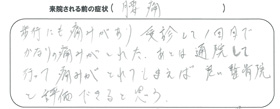 来院される前の症状（腰痛）
歩行にも痛みがあり 受診して1回目で
かなりの痛みがとれた。あとは通院して
行って痛みがとれてしまえば 良い整骨院
と評価できると思う。